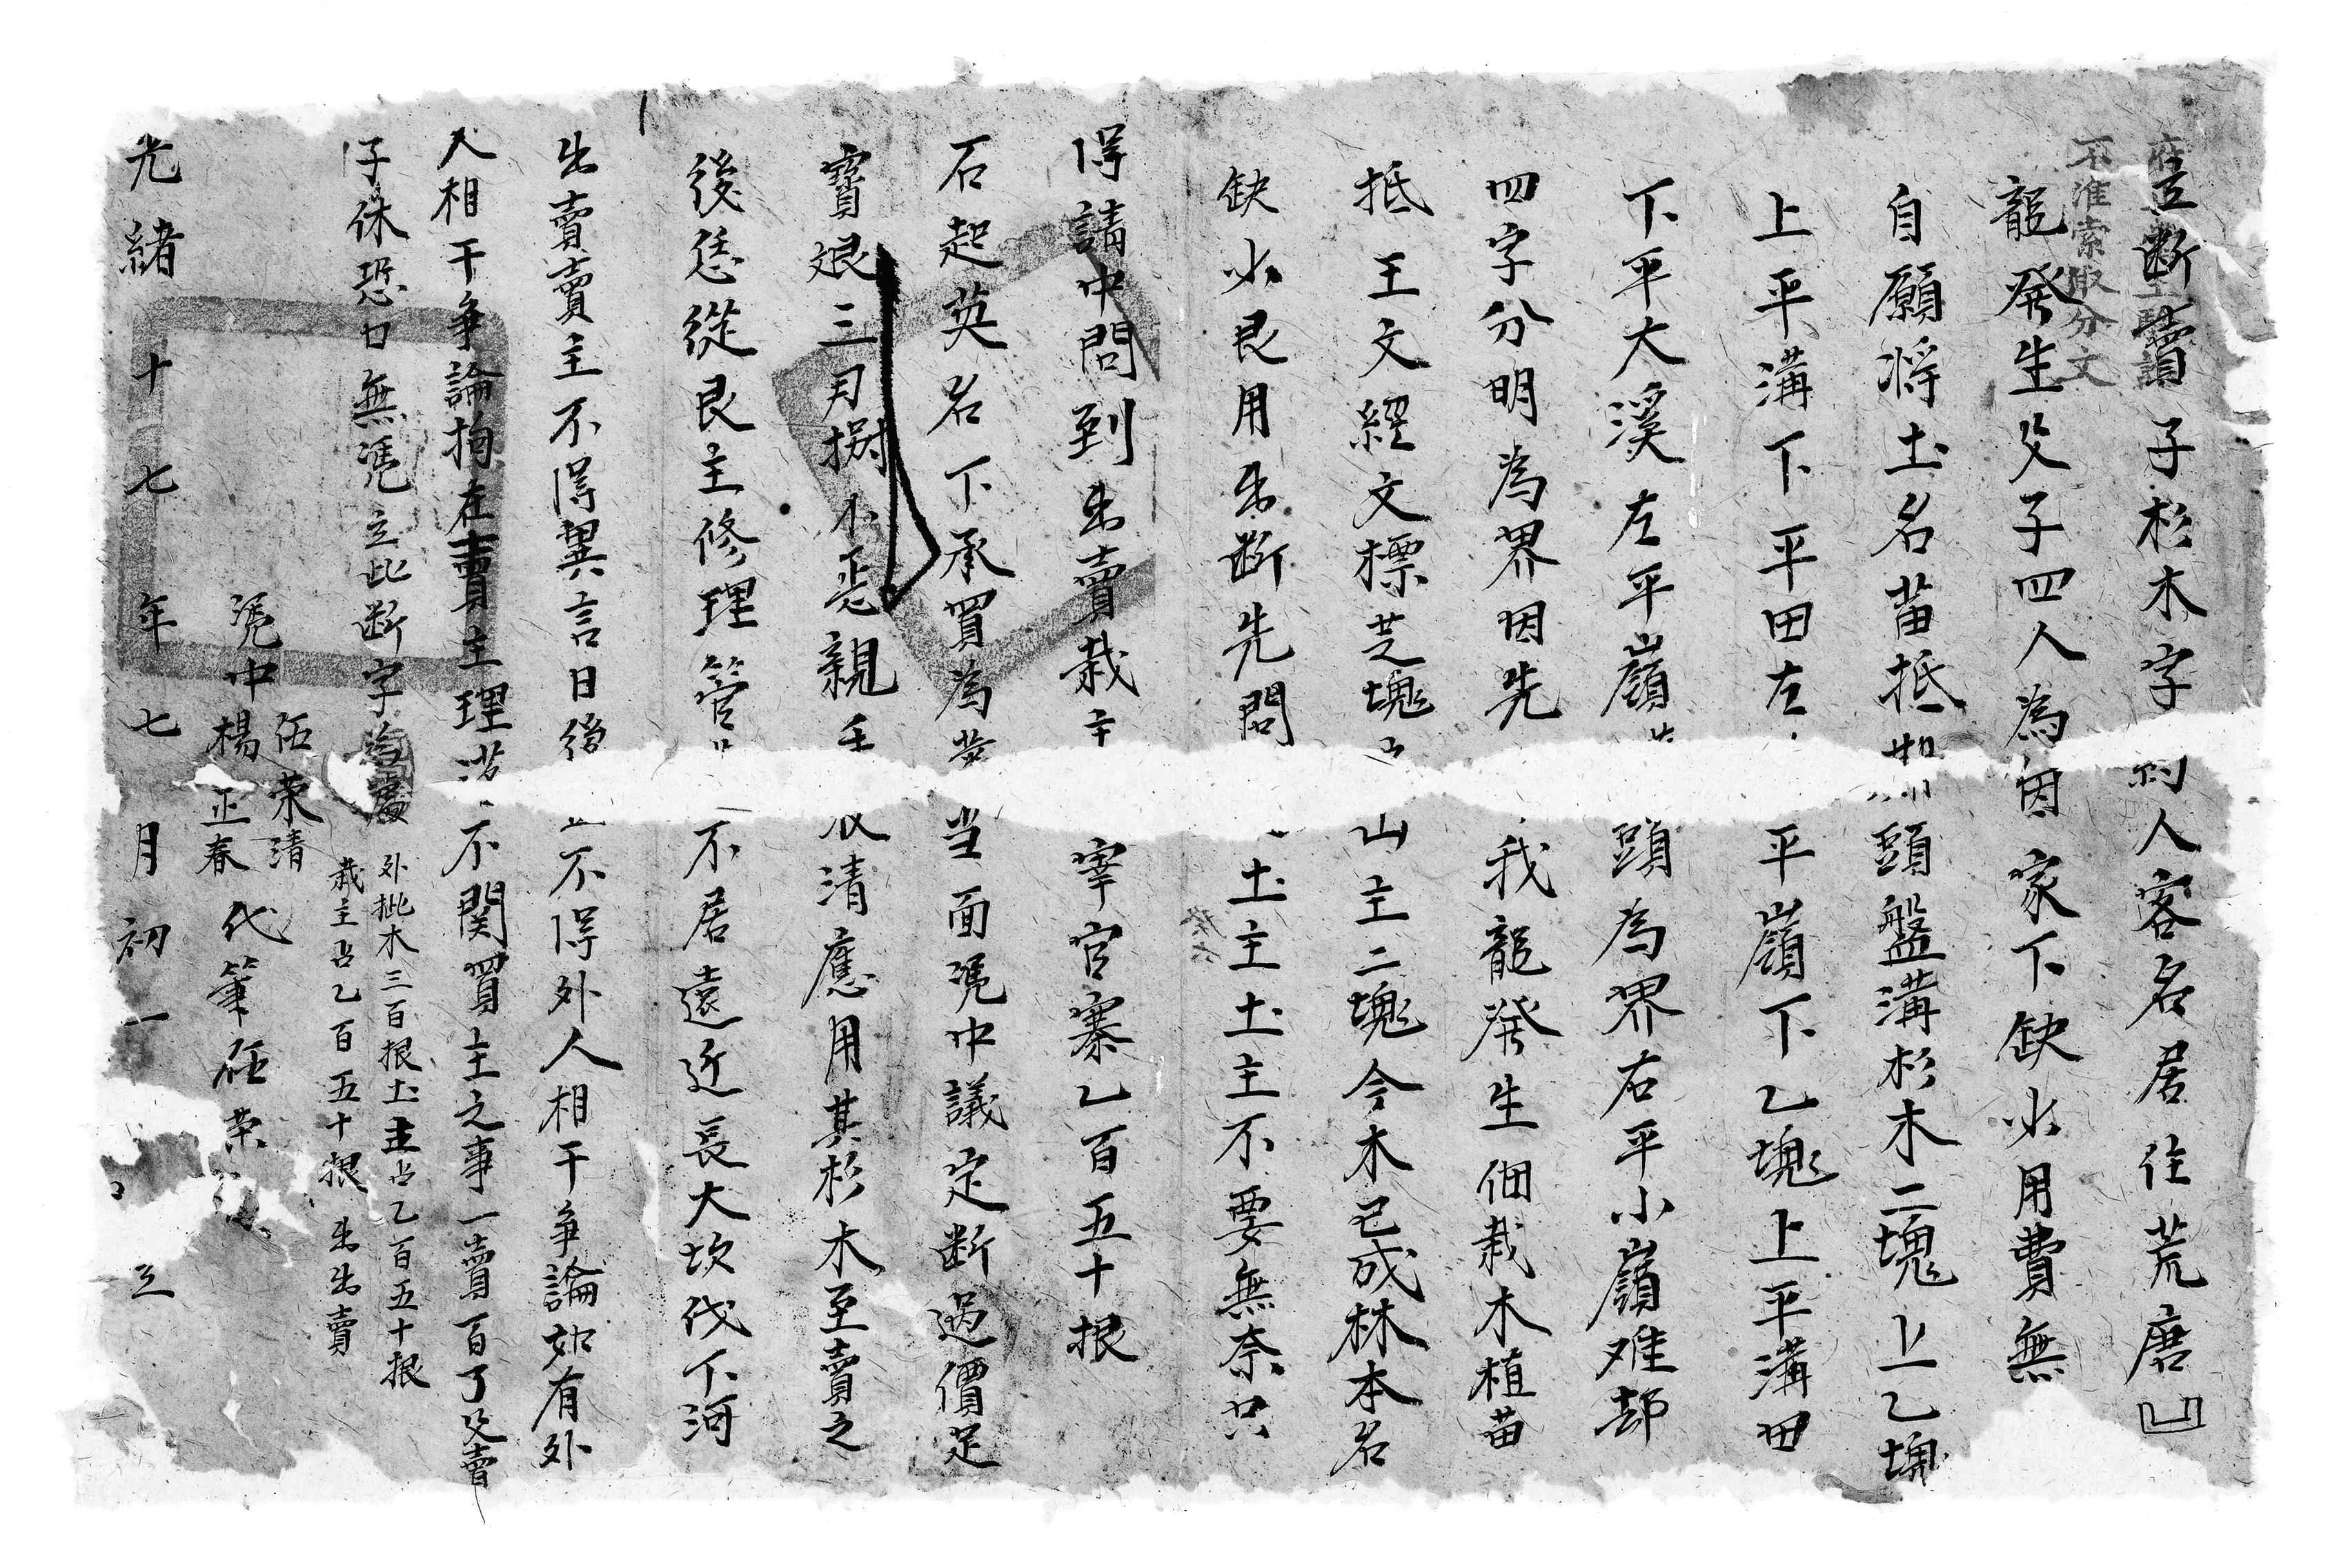 立断賣子杉木字約人客名居住荒唐凹
龍癸生父子四人為因家下缺少用費無
自願将土名苗抵頭盤溝杉木二塊上乙塊
上平溝下平田左平嶺下乙塊上平溝田
下平大溪左平嶺頭為界右平小嶺难却
四字分明為界因先我龍癸生佃栽木植苗
抵王文經文標芝塊山主二塊今木已成林本名
缺少艮用出断先問土主土主不要無奈只
得請中問到出賣栽主宰官寨乙百五十根
石起英名下承買為業当面凴中議定断過價足
寶娘三月捌小悉親手收清應用其杉木至賣之
後恁從艮主修理管不居遠近長大坎伐下河
出賣賣主不得異言日後不得外人相干争論如有外
人相干争論拘在賣主理落不関買主之事一賣百了父賣
子休恐口無凴立此断字為處
外批木三百根土主占乙百五十根
栽主占乙百五十根出出賣
凴中伍荣清
楊正春代筆伍荣
光緒十七年七月初一立
不准索取分文